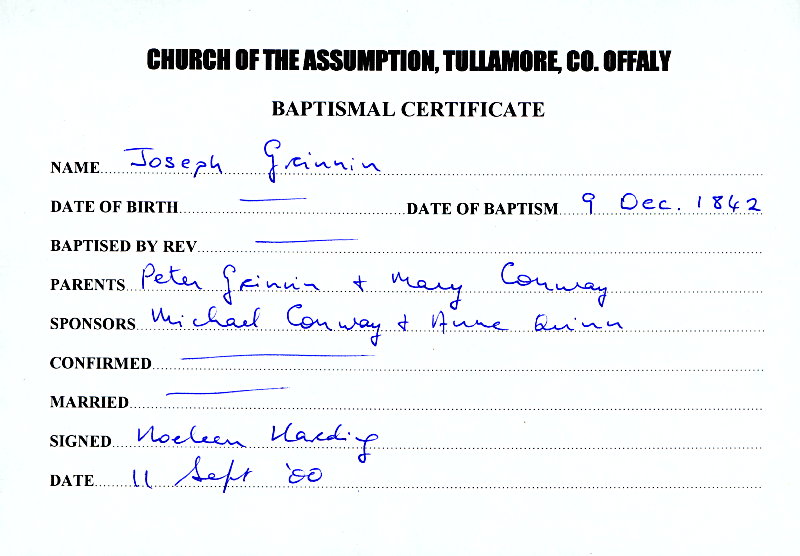 CHURCH OF THE ASSUMPTION, TULLAMORE, CO. OFFALY
BAPTISMAL CERTIFICATE
NAME Joseph Grinnin
DATE OF BIRTH DATE OF BAPTISM 9 Dec. 1842
BAPTISED BY REV
PARENTS Peter Grinnin + Mary Conway
SPONSORS Michael Conway + Anne Quinn
CONFIRMED
MARRIED
SIGNED Noeleen Harding
DATE 11 Sept '00